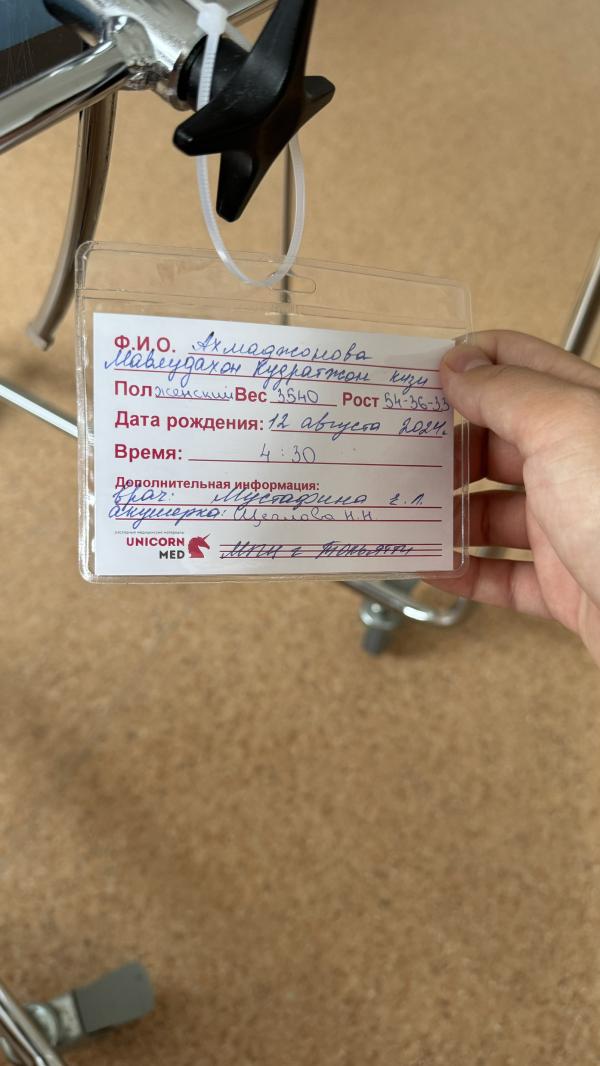 Ф.И.О. Ахмаджонова
Мавлудахон Кудратжон кизи
Пол женский Вес 3540 Рост 54-36-33
Дата рождения: 12 августа 2024г.
Время: 4:30
Дополнительная информация:
врач: Мустафина г.Л.
акушерка: Щеглова Н.Н
расходные медицинские материалы
UNICORN
MED
г Тольятти